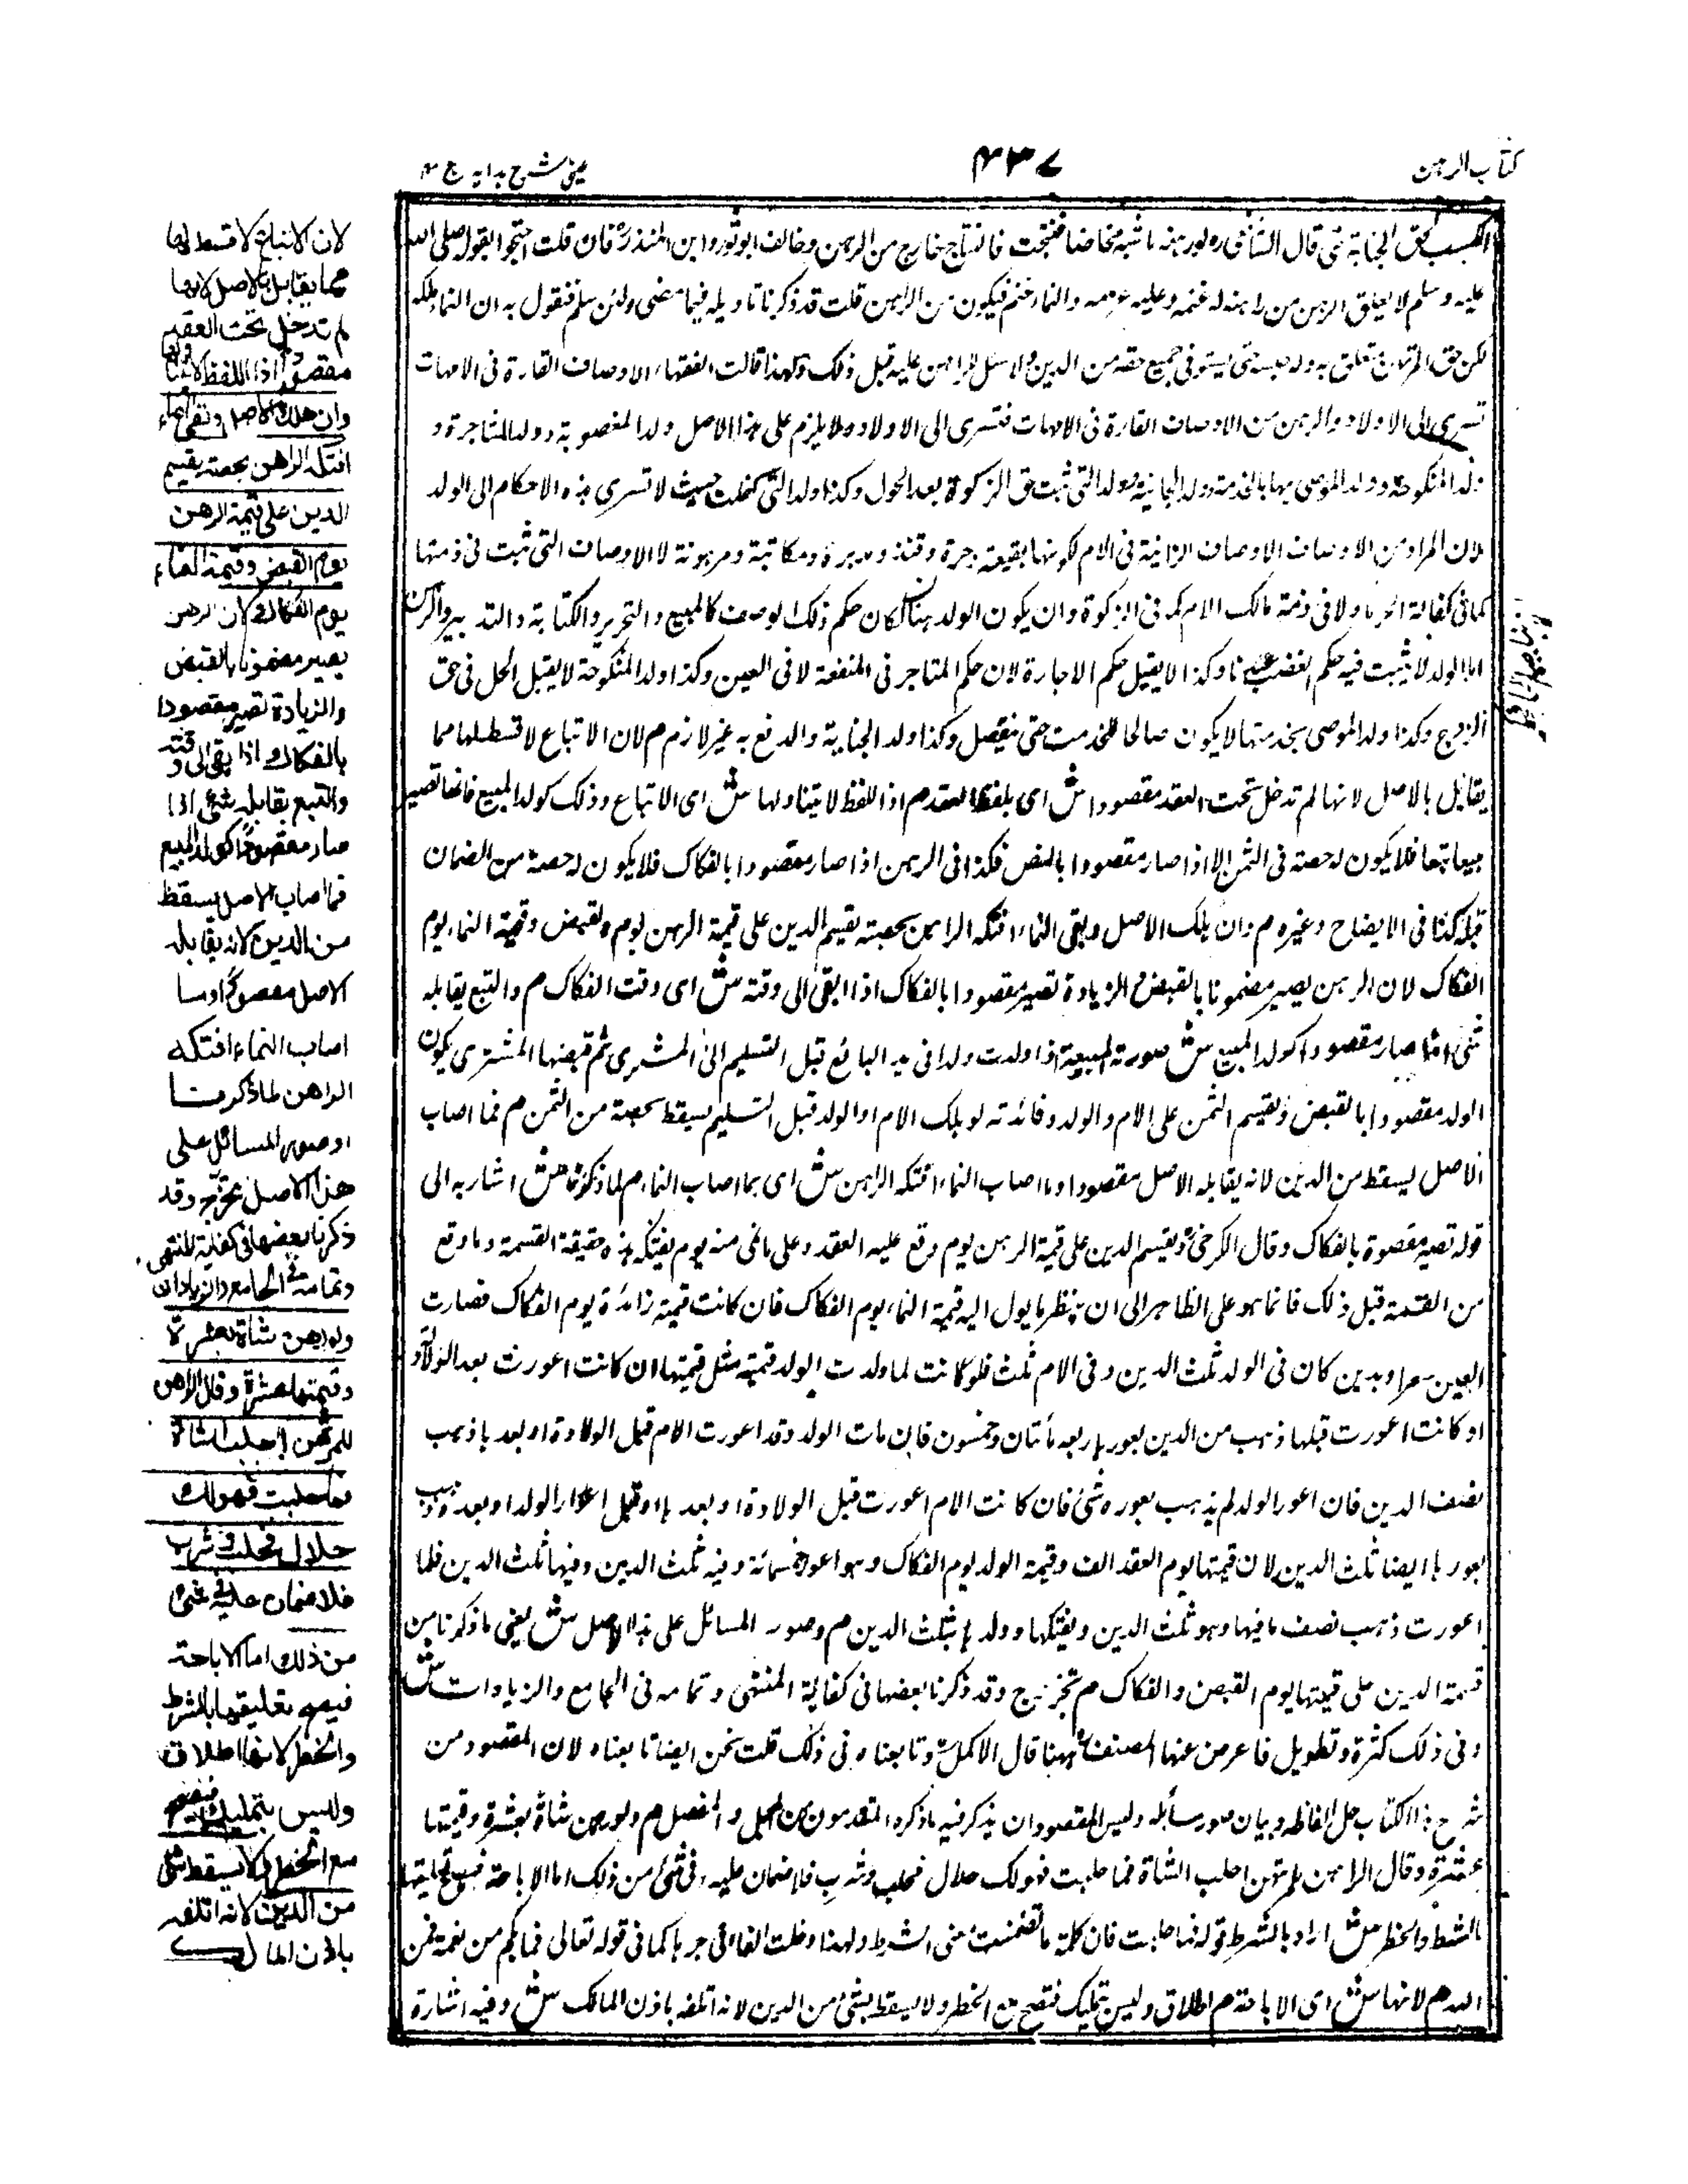 كتاب الرهن
٤٣٧
عينى شرح هدايه ج ٤
الكسب كحق الجناية حتى قال الشافعى رہ لو رہنه ماشية مخاضا فنتجت فالنتاج خارج من الرهن وخالف ابو ثور وابن المنذر فان قلت احتجوا بقوله صلى الله
عليه وسلم لا يغلق الرهن من راهنه له غنمه وعليه غرمه والنماء غنم فيكون من الراهن قلت قد ذكرنا تاويله فيما مضى ولئن سلم فنقول به ان النماء ملكه
لكن حق المرتهن متعلق به وله حبسه حتى يستوفى جميع حقه من الدين ولا سبيل للراهن عليه قبل ذلك ولهذا قالت الفقهاء الاوصاف القارة فى الامهات
تسرى الى الاولاد والرهن من الاوصاف القارة فى الامهات فتسرى الى الاولاد ولا يلزم على هذا الاصل ولد المغصوبة وولد المستاجرة و
ولد المنكوحة وولد الموصى بها بالخدمة وولد الجانية وولد التى ثبت حق الزكوة بعد الحول وكذا ولد التى كفلت حيث لا تسرى هذه الاحكام الى الولد
لان المراد من الاوصاف الاوصاف الذاتية فى الام لكونها حرة وقنة ومدبرة ومكاتبة ومرهونة لا الاوصاف التى تثبت فى ذمتها
كما فى كفالة الحرة ولا فى ذمة مالك الام كما فى الزكوة وان يكون الولد هناك لكان حكم ذلك الوصف كالمبيع والتحرير والكتابة والتدبير والرهن
اما الولد لا يثبت فيه حكم الغصب عندنا وكذا لا يقبل حكم الاجارة لان حكم المستاجر فى المنفعة لا فى العين وكذا ولد المنكوحة لا يقبل الحل فى حق
الزوج وكذا ولد الموصى بخدمتها لا يكون صالحا للخدمة حتى ينفصل وكذا ولد الجناية والدفع به غير لازم م لان الاتباع لا قسط لها مما
يقابل بالاصل لانها لم تدخل تحت العقد مقصودا ش اى بلفظ العقد م اذ اللفظ لا يتناولها ش اى الاتباع وذلك كولد المبيع فانها تصير
مبيعا تبعا فلا يكون له حصة فى الثمن الا اذا صار مقصودا بالقبض فكذا فى الرهن اذا صار مقصودا بالفكاك فلا يكون له حصة من الضمان
قبله كذا فى الايضاح وغيره م وان هلك الاصل وبقى النماء افتكه الراهن بحصته يقسم الدين على قيمة الرهن يوم القبض وقيمة النماء يوم
الفكاك لان الرهن يصير مضمونا بالقبض والزيادة تصير مقصودا بالفكاك اذا بقى الى وقته ش اى وقت الفكاك م والتبع يقابله
شئ اذا صار مقصودا كولد المبيع ش صورته المبيعة اذا ولدت ولدا فى يد البائع قبل التسليم الى المشترى ثم قبضها المشترى يكون
الولد مقصودا بالقبض ويقسم الثمن على الام والولد وفائدته لو هلك الام او الولد قبل التسليم يسقط بحصة من الثمن م فما اصاب
الاصل يسقط من الدين لانه يقابله الاصل مقصودا وما اصاب النماء افتكه الراهن ش اى بما اصاب النماء م لما ذكرنا ش اشار به الى
قوله تصير مقصودة بالفكاك وقال الكرخى ويقسم الدين على قيمة الرهن يوم وقع عليه العقد وعلى ما نمى منه يوم يفتكه هذه حقيقة القسمة وما وقع
من القسمة قبل ذلك فانما هو على الظاهر الى ان ينظر ما يول اليه قيمة النماء يوم الفكاك فان كانت قيمة زائدة يوم الفكاك فصارت
كان فى الولد ثلث الدين وفى الام ثلث فلو كانت لما ولدت الولد قيمته مثل قيمتها ان كانت اعورت بعد الولادة
او كانت اعورت قبلها ذهب من الدين بعورها ربعه مأتان وخمسون فان مات الولد وقد اعورت الام قبل الولادة او بعدها ذهب
نصف الدين فان اعور الولد لم يذهب بعوره شئ فان كانت الام اعورت قبل الولادة او بعدها او قبل اعورار الولد او بعده ذهب
بعورها ايضا ثلث الدين لان قيمتها يوم العقد الف وقيمة الولد يوم الفكاك وهو اعور خمسمائة وفيه ثلث الدين وفيها ثلث الدين فلما
اعورت ذهب نصف ما فيها وهو ثلث الدين ويفتكها وولدها بثلث الدين م وصور المسائل على هذا الاصل ش يعنى ما ذكرنا من
قسمة الدين على قيمتها يوم القبض والفكاك م تخرج وقد ذكرنا بعضها فى كفاية المنتهى وتمامه فى الجامع والزيادات ش
وفى ذلك كثرة وتطويل فاعرض عنها المصنف ههنا قال الاكمل وتابعناه فى ذلك قلت نحن ايضا تابعناه لان المقصود من
شرح هذا الكتاب حل الفاظه وبيان صور مسائله وليس المقصود ان يذكر فيه ما ذكره المتقدمون من المجمل والمفصل م ولو رهن شاة بعشرة وقيمتها
عشرة وقال الراهن للمرتهن احلب الشاة فما حلبت فهو لك حلال فحلب وشرب فلا ضمان عليه فى شئ من ذلك اما الاباحة فيصح تعليقها
بالشرط والخطر ش اراد بالشرط قوله فما حلبت فان كلمة ما تضمنت معنى الشرط ولهذا دخلت الفاء فى خبرها كما فى قوله تعالى فما بكم من نعمة فمن
الله م لانها ش اى الاباحة م اطلاق وليس بتمليك فتصح مع الخطر ولا يسقط بشئ من الدين لانه اتلفه باذن المالك ش وفيه اشارة
لان الاتباع لا قسط لها
مما يقابل بالاصل لانها
لم تدخل تحت العقد
مقصودا اذ اللفظ لا يتناولها
وان هلك الاصل وبقى النماء
افتكه الراهن بحصته يقسم
الدين على قيمة الرهن
يوم القبض وقيمة النماء
يوم الفكاك لان الرهن
يصير مضمونا بالقبض
والزيادة تصير مقصودا
بالفكاك اذا بقى الى وقته
والتبع يقابله شئ اذا
صار مقصودا كولد المبيع
فما اصاب الاصل يسقط
من الدين لانه يقابله
الاصل مقصودا وما
اصاب النماء افتكه
الراهن لما ذكرنا
وصور المسائل على
هذا الاصل تخرج وقد
ذكرنا بعضها فى كفاية المنتهى
وتمامه فى الجامع والزيادات
ولو رهن شاة بعشرة
وقيمتها عشرة وقال الراهن
للمرتهن احلب الشاة
فما حلبت فهو لك
حلال فحلب وشرب
فلا ضمان عليه فى شئ
من ذلك اما الاباحة
فيصح تعليقها بالشرط
والخطر لانها اطلاق
وليس بتمليك فتصح
مع الخطر ولا يسقط شئ
من الدين لانه اتلفه
باذن المالك